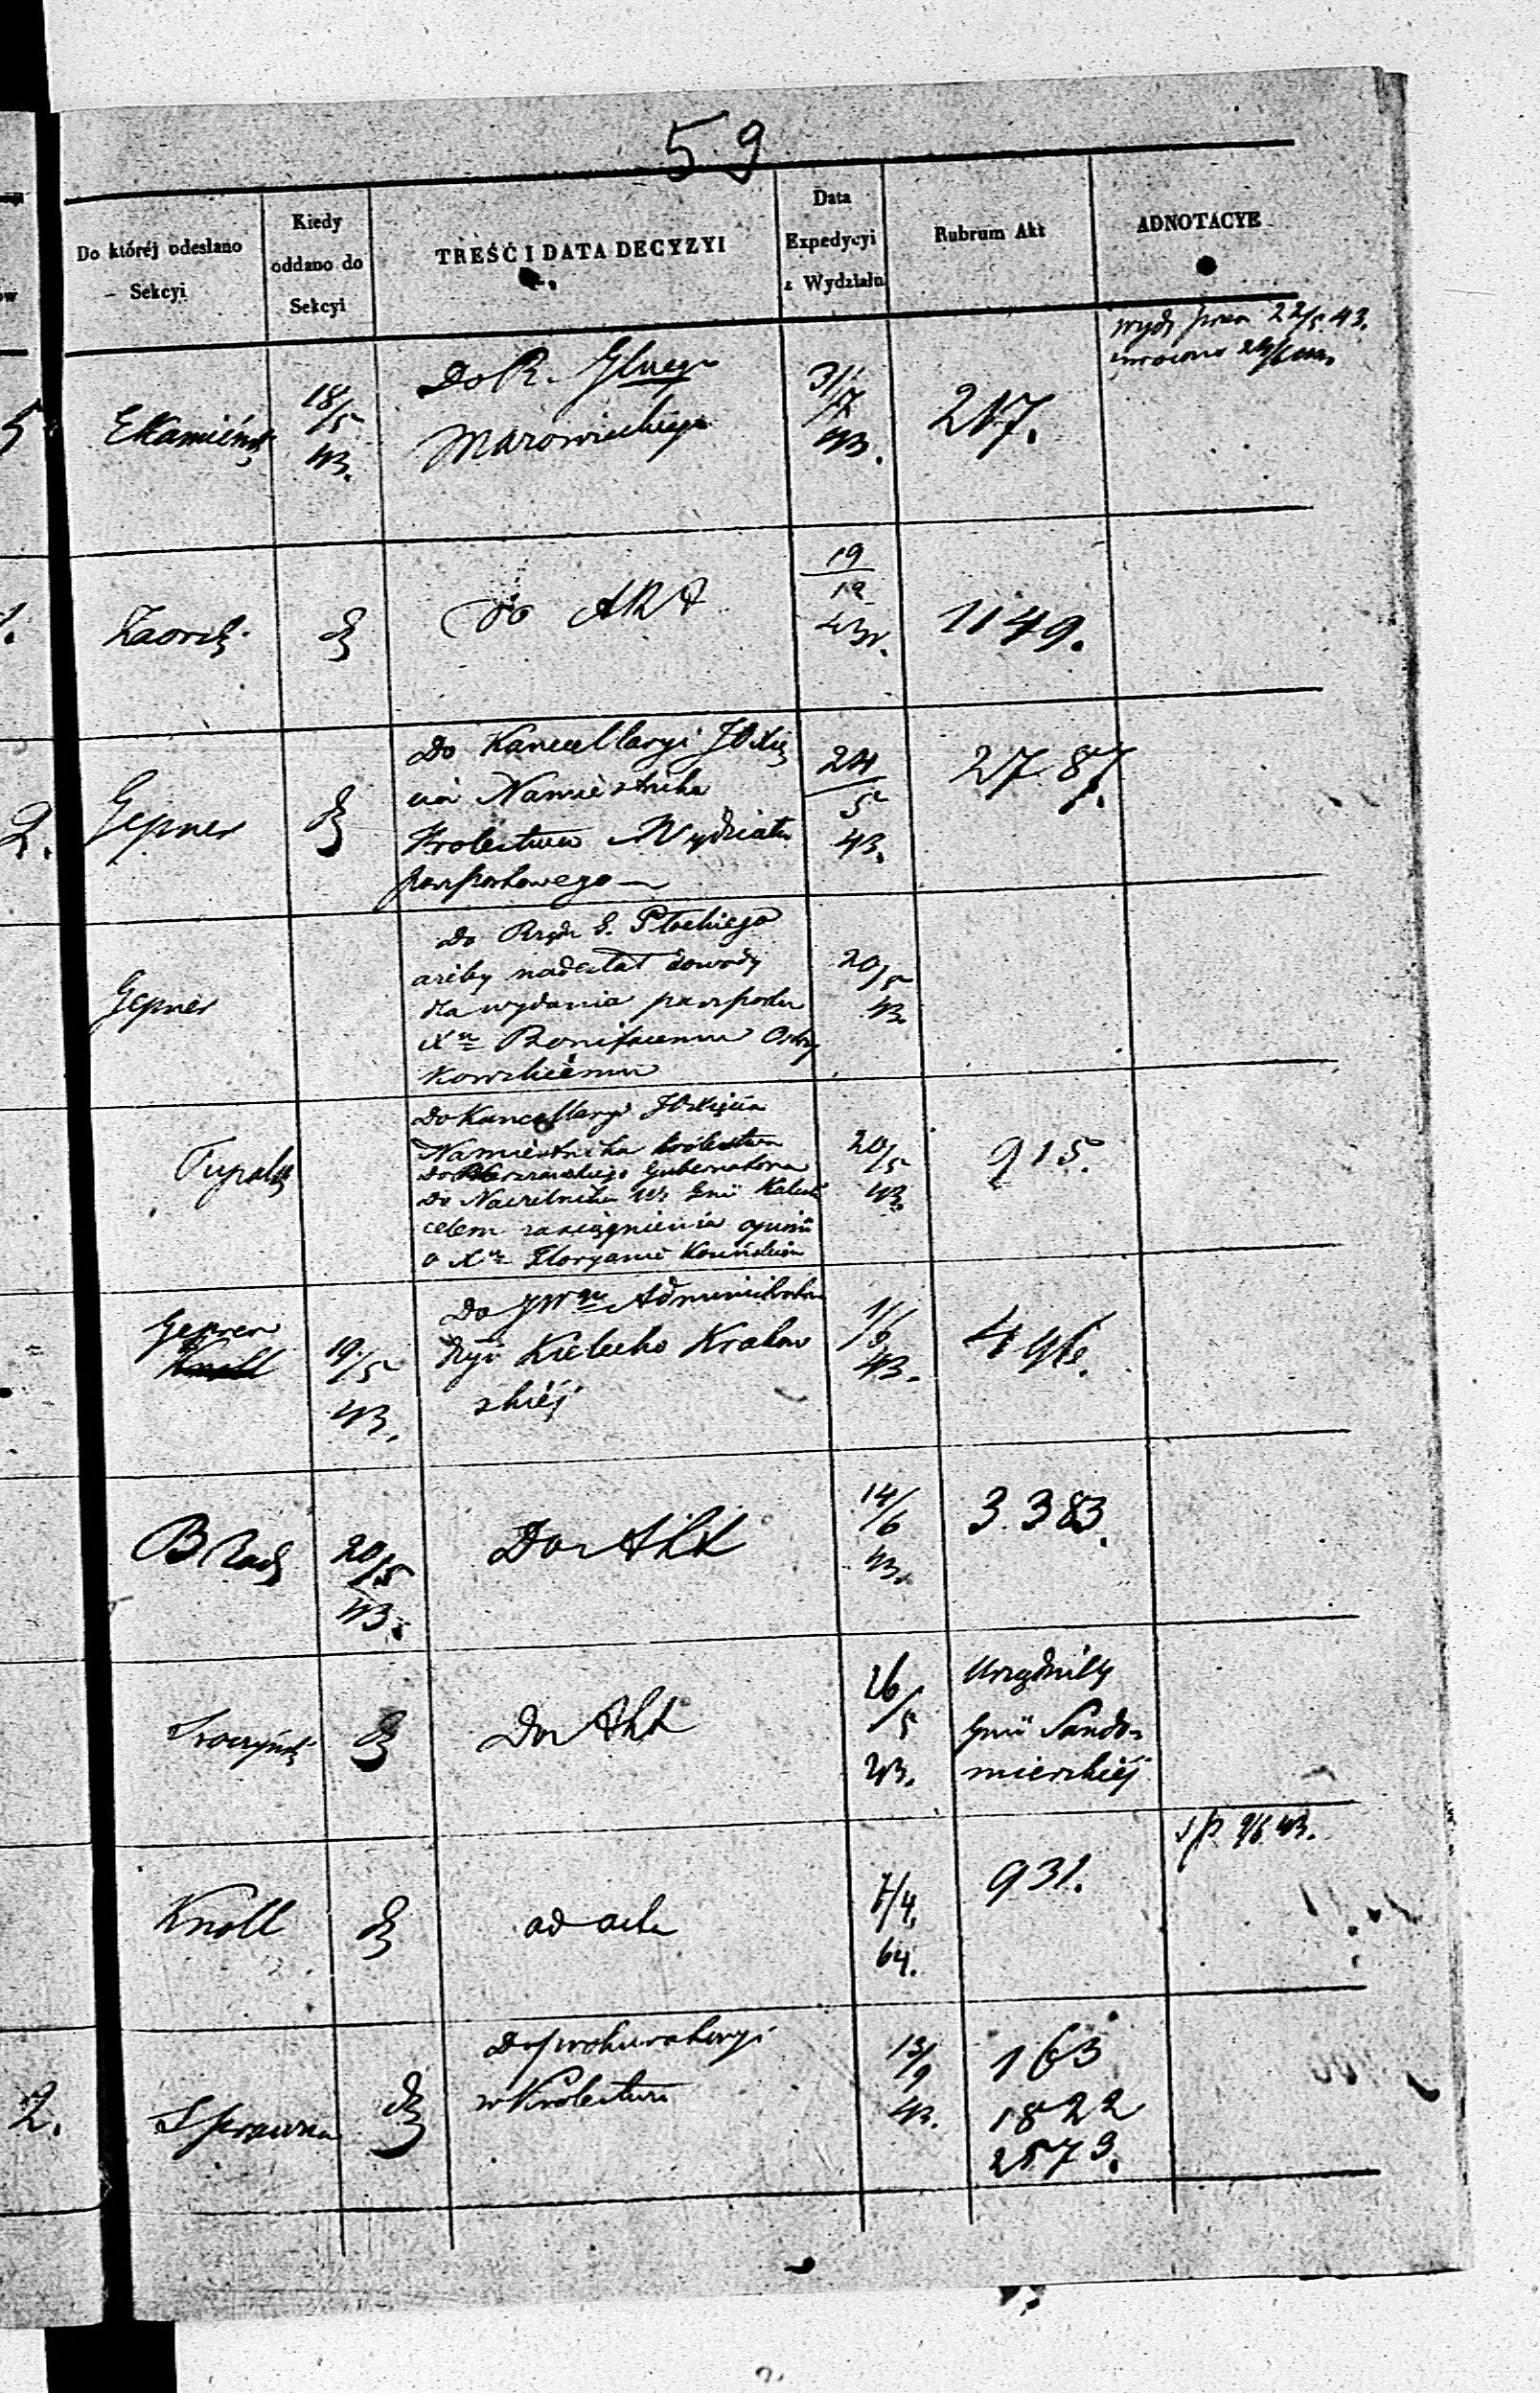 59
Do któréj odesłano
Sekcyi
Kiedy
oddano do
Sekcyi
TREŚĆ I DATA DECYZYI
Data
Expedycyi
z Wydziału
Rubrum Akt
ADNOTACYE
22/5 43.
EKamiński
18/5
43.
Do R. Glnego
Mazowieckiego
31/7
43.
217.
Do Akt
19
12
43r.
1149.
Gepner
Do Kancellaryi JOXię
cia Namiestnika
Krolestwa Wydziału
passportowego
24
5
43.
2787.
Gepner
Do Rządu G. Płockiego
ażeby nadesłał dowody
dla wydania passportu
Xu Bonifacemu
kowskiemu
20/5
43.
Tupalsk
Do Kancellaryi JOXięcia
Namiestnika Królestwa
Do Warszawskiego Gubernatora
Do Naczelnika Wo Gnii Kalisk
celem zasiągnienia opinii
o Xu Floryanie
20/5
43.
915.
Gepner
Knoll
19/5
43.
Do JWgo Administratora
Dyi Kielecko Krakow
skiéj
1/6
43.
496.
20/5
43.
Do Akt
14/6
43.
3.383.
Do Akt
26/5
43.
Urzędnicy
Gnii Sando-
mierskiéj
Knoll
ad acta
7/4
64.
931.
9/6 43.
2.
Do prokuratoryi
w Krolestwie
13/9
43.
163
1822
2573.